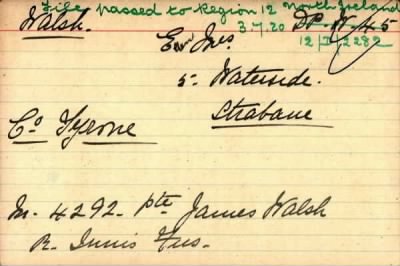 File passed to Region 12 North Ireland
Walsh. 3.7.20 DP. W. 45
12/I/2282
5. Waterside.
Strabane
Co Tyrone
M. 4292. Pte James Walsh
R. Innis Fus.